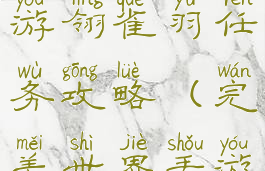 yóu líng què yǔ rèn
游翎雀羽任
wù gōng lüè wán
务攻略(完
měi shì jiè shǒu yóu
美世界手游